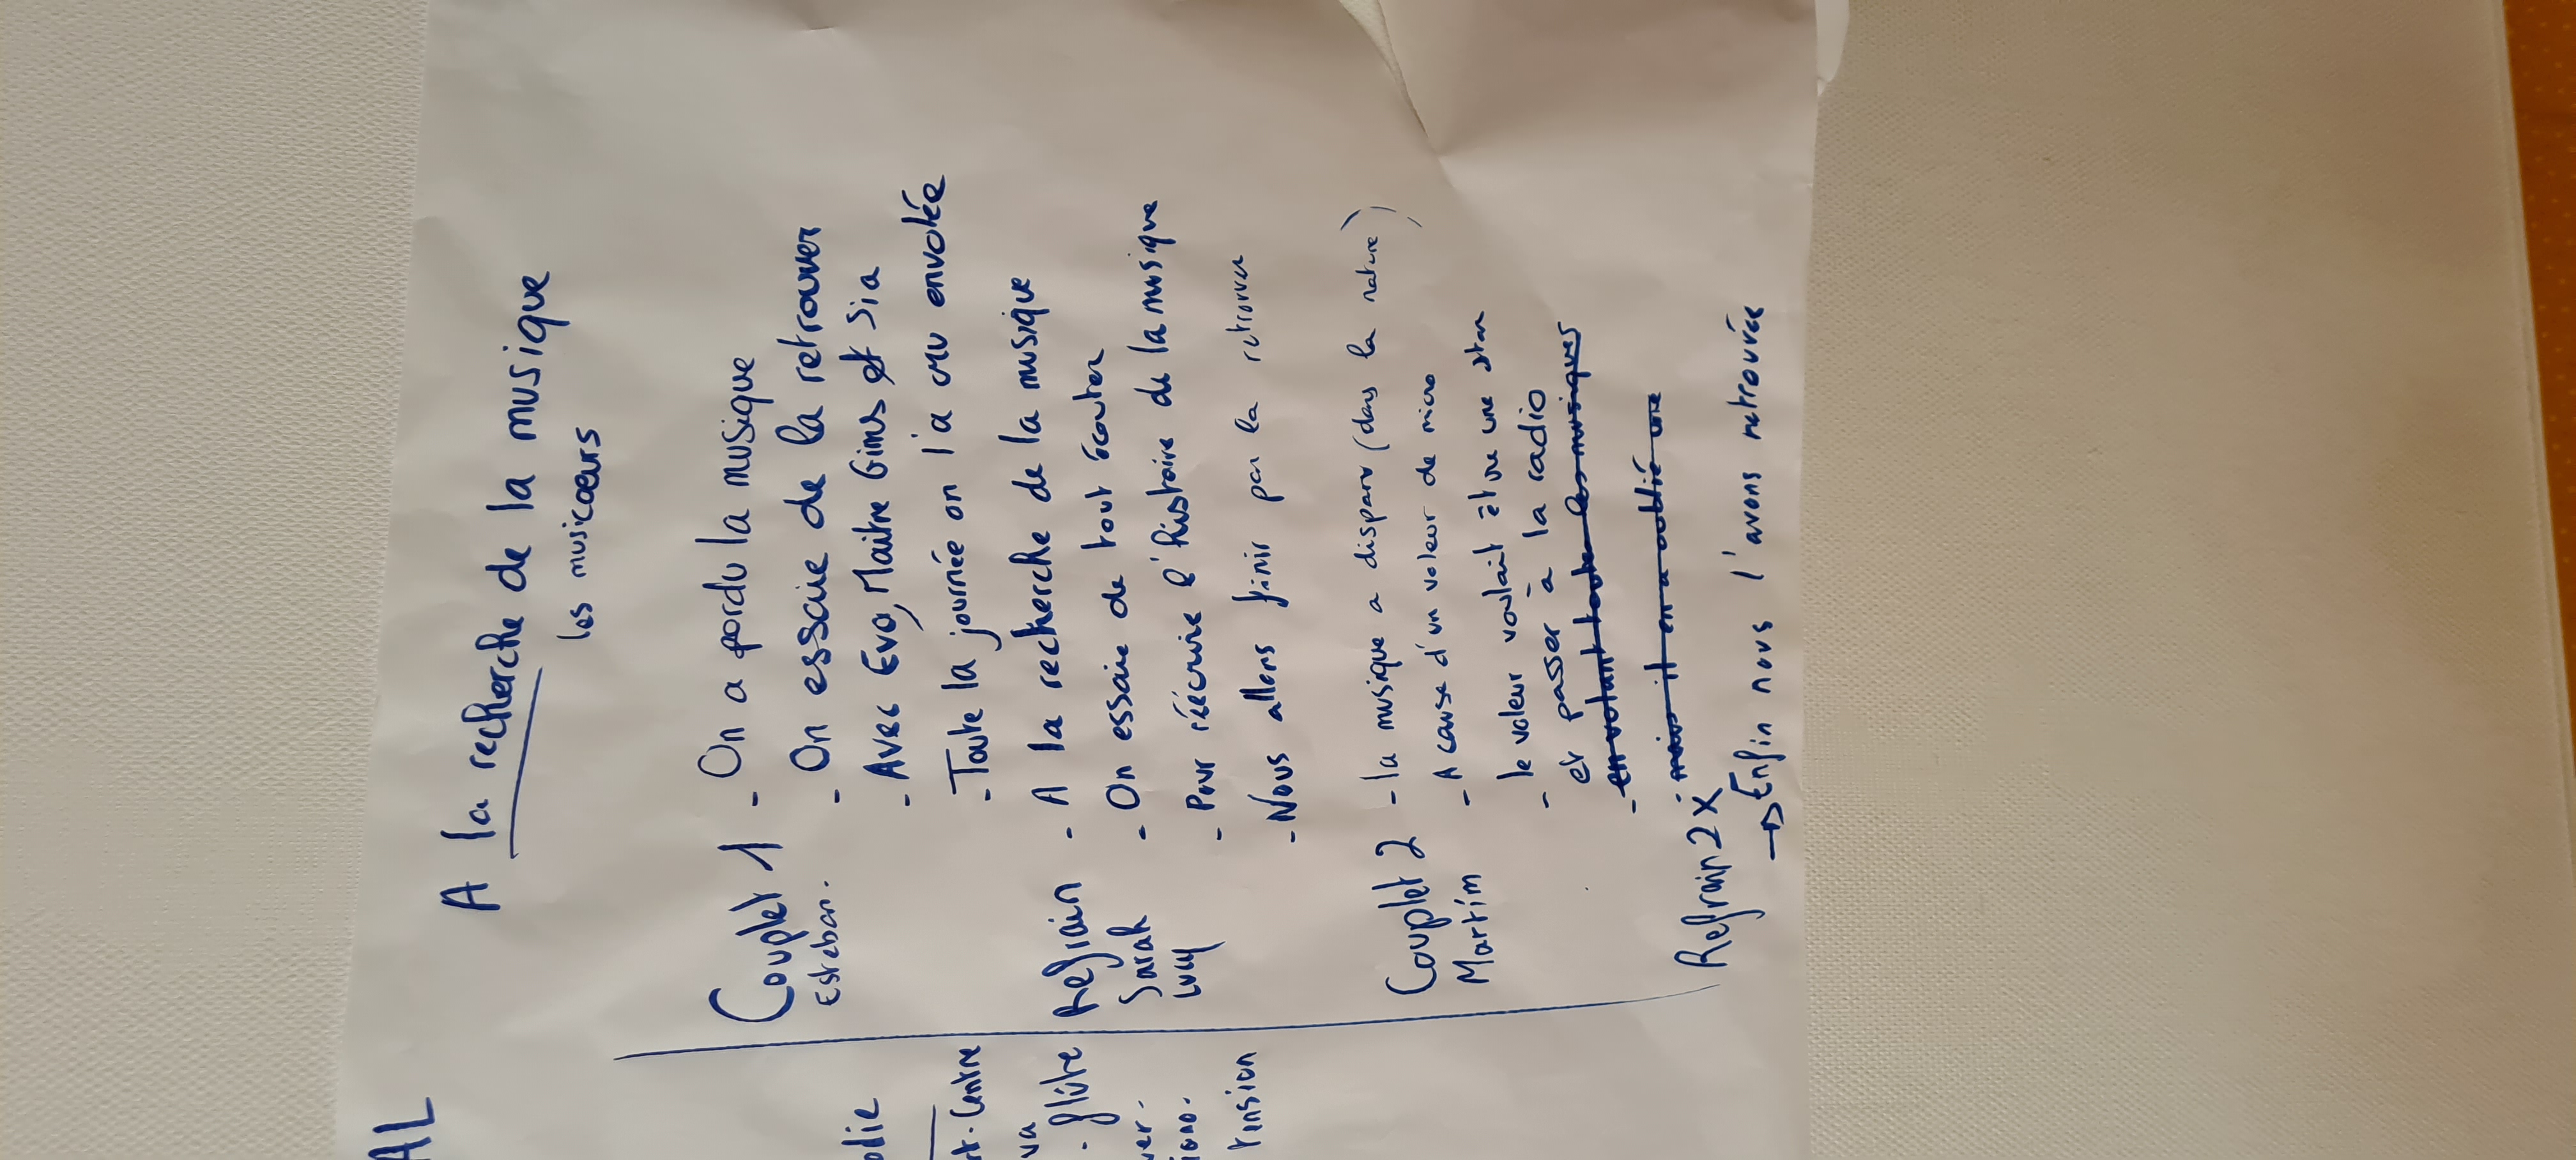 AL
A la recherche de la musique
les musicoeurs
Couplet 1 - On a perdu la musique
Esteban. - On essaie de la retrouver
- Avec Eva, Maitre Gims et Sia
- Toute la journée on l'a cru envolée
Refrain - A la recherche de la musique
Sarah - On essaie de tout écouter
Lucy - Pour réécrire l'histoire de la musique
- Nous allons finir par la retrouver
Couplet 2 - la musique a disparu (dans la nature)
Martim - A cause d'un voleur de micro
- le voleur voulait être une star
et passer à la radio
- en volant toute les musiques
- mais il en a oublié une
Refrain 2x
→ Enfin nous l'avons retrouvée
odie
rt-Centre
va
- flûte
ver.
iano.
tension